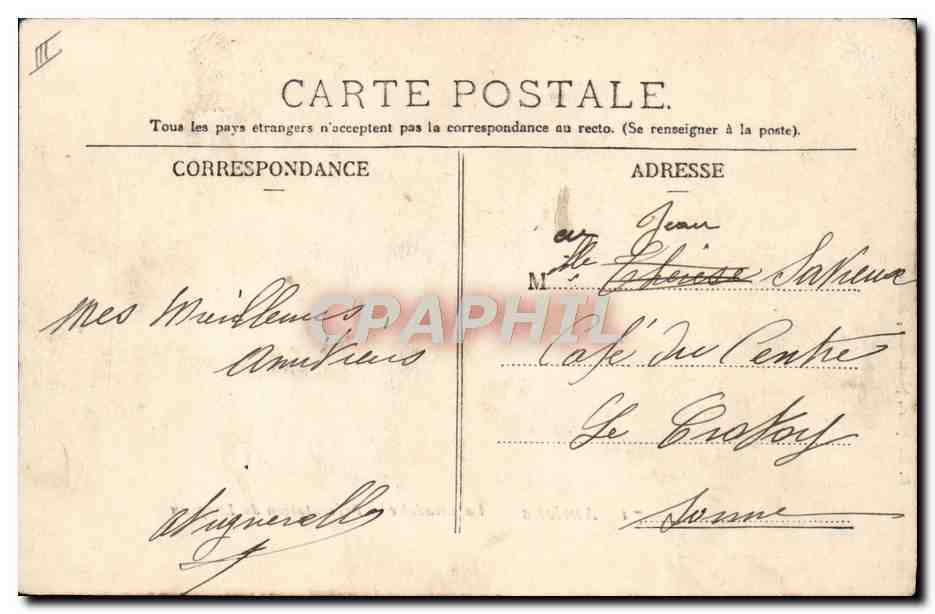 III
CARTE POSTALE.
Tous les pays étrangers n'acceptent pas la correspondance au recto. (Se renseigner à la poste).
CORRESPONDANCE
ADRESSE
Jean
M lle Thérèse
Mes Meilleures
Amitiés
CPAPHIL
Café du Centre
Le Crotoy
Somme